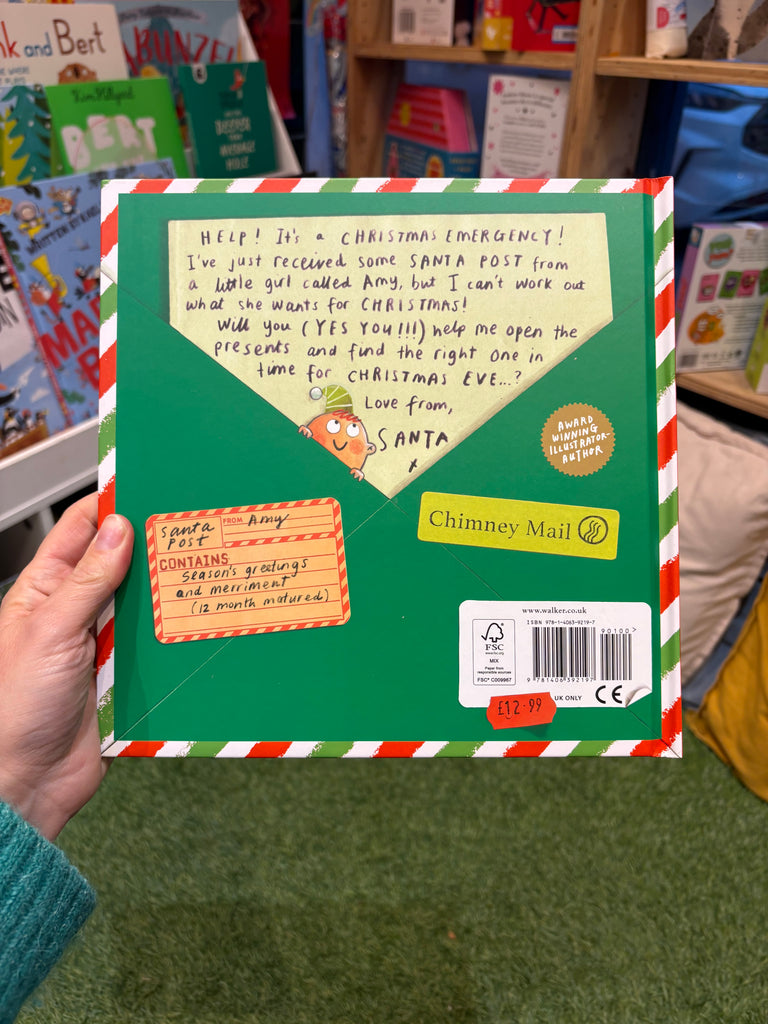 nk and Bert
ABUNZEL
Kim Hillyard
BERT
WRITTEN BY
HELP! It's a CHRISTMAS EMERGENCY!
I've just received some SANTA POST from
a little girl called Amy, but I can't work out
what she wants for CHRISTMAS!
Will you (YES YOU!!!) help me open the
presents and find the right one in
time for CHRISTMAS EVE...?
Love from,
SANTA
x
AWARD
WINNING
ILLUSTRATOR-
AUTHOR
Santa
Post
FROM Amy
CONTAINS
Season's greetings
and merriment
(12 month matured)
Chimney Mail
www.walker.co.uk
ISBN 978-1-4063-9219-7
90100>
FSC
www.fsc.org
MIX
Paper from
responsible sources
FSC® C009967
9 781406 392197
UK ONLY
CE
£12.99